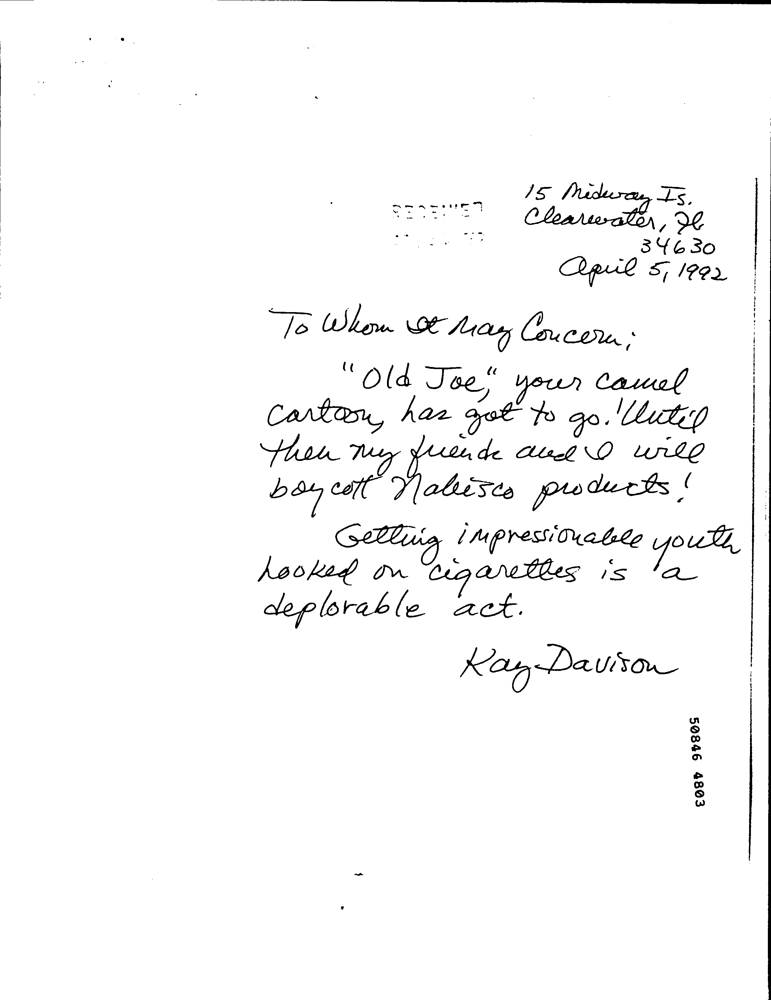 15 Midway Is.
Clearwater, Fl
34630
RECEIVED
April 5, 1992
To Whom It May Concern;
"Old Joe," your camel
cartoon, has got to go! Until
then my friends and I will
boycott Nabisco products!
Getting impressionable youth
hooked on cigarettes is a
deplorable act.
Kay Davison
50846 4803